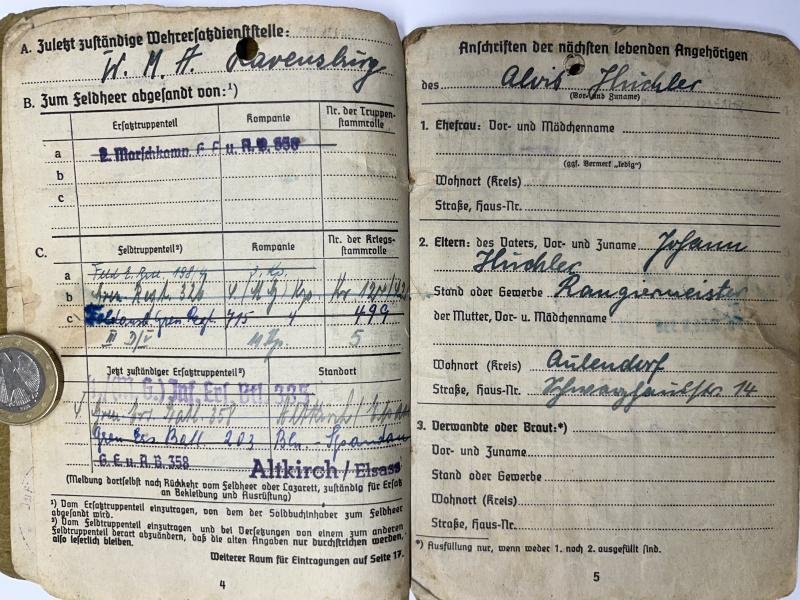 A. Zuletzt zuständige Wehrersatzdienststelle:
W. M. A. Ravensburg
B. Zum Feldheer abgesandt von:¹)
Ersatztruppenteil
Kompanie
Nr. der Truppen-
stammrolle
a
2. Marschkomp. G. E. u. A. B. 358
b
c
C.
Feldtruppenteil²)
Kompanie
Nr. der Kriegs-
stammrolle
a
b
Gren. Regt. 326
c
Gren. Regt. 715
4
499
5
Jetzt zuständiger Ersatztruppenteil²)
Standort
4. (M. G.) Inf. Ers. Btl. 335
358
Gren Ers Batl. 203
Bln - Spandau
G. E. u. A. B. 358
Altkirch / Elsass
(Meldung dortselbst nach Rückkehr vom Feldheer oder Lazarett, zuständig für Ersatz
an Bekleidung und Ausrüstung)
¹) Vom Ersatztruppenteil einzutragen, von dem der Soldbuchinhaber zum Feldheer
abgesandt wird.
²) Vom Feldtruppenteil einzutragen und bei Versetzungen von einem zum anderen
Feldtruppenteil derart abzuändern, daß die alten Angaben nur durchstrichen werden,
also leserlich bleiben.
Weiterer Raum für Eintragungen auf Seite 17.
4
Anschriften der nächsten lebenden Angehörigen
des Alois Huchler
(Vor- und Zuname)
1. Ehefrau: Vor- und Mädchenname
(ggf. Vermerk „ledig“)
Wohnort (Kreis)
Straße, Haus-Nr.
2. Eltern: des Vaters, Vor- und Zuname Johann
Huchler
Stand oder Gewerbe Rangiermeister
der Mutter, Vor- u. Mädchenname
Wohnort (Kreis) Aulendorf
Straße, Haus-Nr. 14
3. Verwandte oder Braut:*)
Vor- und Zuname
Stand oder Gewerbe
Wohnort (Kreis)
Straße, Haus-Nr.
*) Ausfüllung nur, wenn weder 1. noch 2. ausgefüllt sind.
5